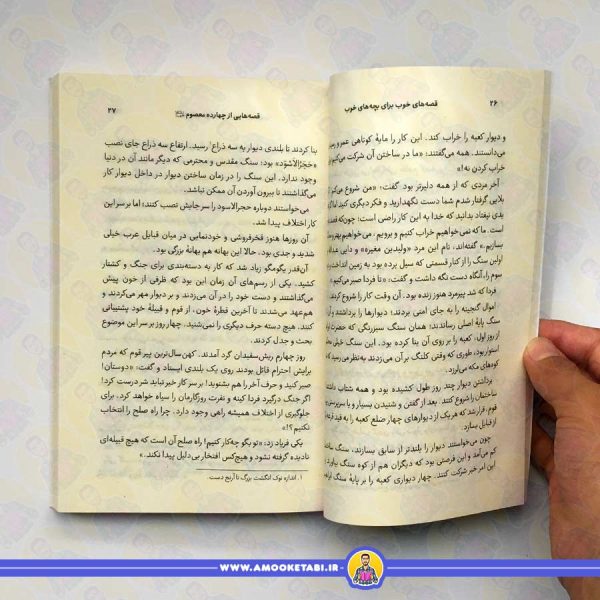 ۲۶ قصه‌های خوب برای بچه‌های خوب
و دیوار کعبه را خراب کند. این کار را مایهٔ کوتاهی عمر و
می‌دانستند. همه می‌گفتند: «ما در ساختن آن شرکت می‌کنیم
خراب کردن نه!»
آخر مردی که از همه دلیرتر بود گفت: «من شروع می‌کنم
بلایی گرفتار شدم شما دست نگهدارید و فکر دیگری کنید اما
بدی نیفتاد بدانید که خدا به این کار راضی است؛ چون‌که قصد
است. ما که نمی‌خواهیم خراب کنیم و برویم. می‌خواهیم بهتر
بسازیم.» گفته‌اند، نام این مرد «ولیدبن مغیره» و دایی
اولین سنگ را از کنار قسمتی که سیل برده بود به زمین انداخت
سوم را، آنگاه دست نگه داشت و گفت: «تا فردا صبر می‌کنیم.»
فردا که شد پیرمرد هنوز زنده بود. آن وقت کار را شروع کردند.
اموال گنجینه را به جای امنی بردند؛ دیوارها را برداشتند و
سنگ پایهٔ اصلی رساندند؛ همان سنگ سبزرنگی که حضرت
از روز اول، کعبه را بر روی آن بنا کرده بود. این سنگ خیلی
استوار بود، طوری که وقتی کلنگ بر آن می‌زدند به نظر می‌رسید که
کوه‌های مکه می‌لرزد.
برداشتن دیوار چند روز طول کشیده بود و همه شتاب داشتند
ساختمان را شروع کنند. بعد از گفتن و شنیدن بسیار و با سرپرستی
قوم، قرار شد که هریک از دیوارهای چهار ضلع کعبه را به قید
از قبایل بسازد.
چون می‌خواستند دیوار را بلندتر از سابق بسازند، سنگ
کم می‌آمد و این فرصتی بود که دیگران هم از کوه سنگ بیاورند
این امر خیر شرکت کنند. چهار دیواری کعبه را بر پایهٔ سنگ
قصه‌هایی از چهارده معصوم ۲۷
بنا کردند تا بلندی دیوار به سه ذراع۱ رسید. ارتفاع سه ذراع جای نصب
«حَجَرُالاَسْوَد» بود: سنگ مقدس و محترمی که دیگر مانند آن در دنیا
وجود ندارد. این سنگ را در زمان ساختن دیوار در داخل دیوار کار
می‌گذاشتند تا بیرون آوردن آن ممکن نباشد.
می‌خواستند دوباره حجرالاسود را سرجایش نصب کنند؛ اما بر سر این
کار اختلاف پیدا شد.
آن روزها هنوز فخرفروشی و خودنمایی در میان قبایل عرب خیلی
شدید و جدی بود. حالا این بهانه هم بهانهٔ بزرگی بود.
آن‌قدر بگومگو زیاد شد که کار به دسته‌بندی برای جنگ و کشتار
کشید. یکی از رسم‌های آن زمان این بود که ظرفی از خون پیش
می‌گذاشتند و دست خود را در آن می‌زدند و بر دیوار مهر می‌کردند و
هم‌عهد می‌شدند تا آخرین قطرهٔ خون، از قوم و قبیلهٔ خود پشتیبانی
کنند. هیچ دسته حرف دیگری را نمی‌شنید. چهار روز بر سر این موضوع
بحث و جدل کردند.
روز چهارم ریش‌سفیدان گرد آمدند. کهن سال‌ترین پیر قوم که مردم
برایش احترام قائل بودند روی یک بلندی ایستاد و گفت: «دوستان!
صبر کنید و حرف آخر را هم بشنوید! بر سر کار خیر نباید شر درست کرد!
اگر جنگ درگیرد فردا کینه و نفرت روزگارمان را سیاه خواهد کرد. برای
جلوگیری از اختلاف همیشه راهی وجود دارد. چرا راه صلح را انتخاب
نکنیم؟!»
یکی فریاد زد: «تو بگو چه‌کار کنیم! راه صلح آن است که هیچ قبیله‌ای
نادیده گرفته نشود و هیچ‌کس افتخار بی‌دلیل پیدا نکند.»
۱. اندازه نوک انگشت بزرگ تا آرنج دست.
WWW.AMOOKETABI.IR